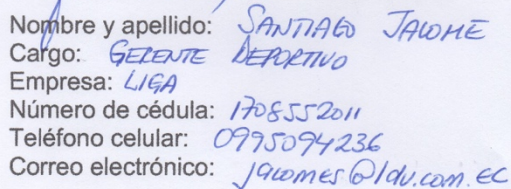 Nombre y apellido: SANTIAGO JACOME
Cargo: GERENTE DEPORTIVO
Empresa: LIGA
Número de cédula: 1708552011
Teléfono celular: 0995094236
Correo electrónico: jacomes@ldu.com.ec